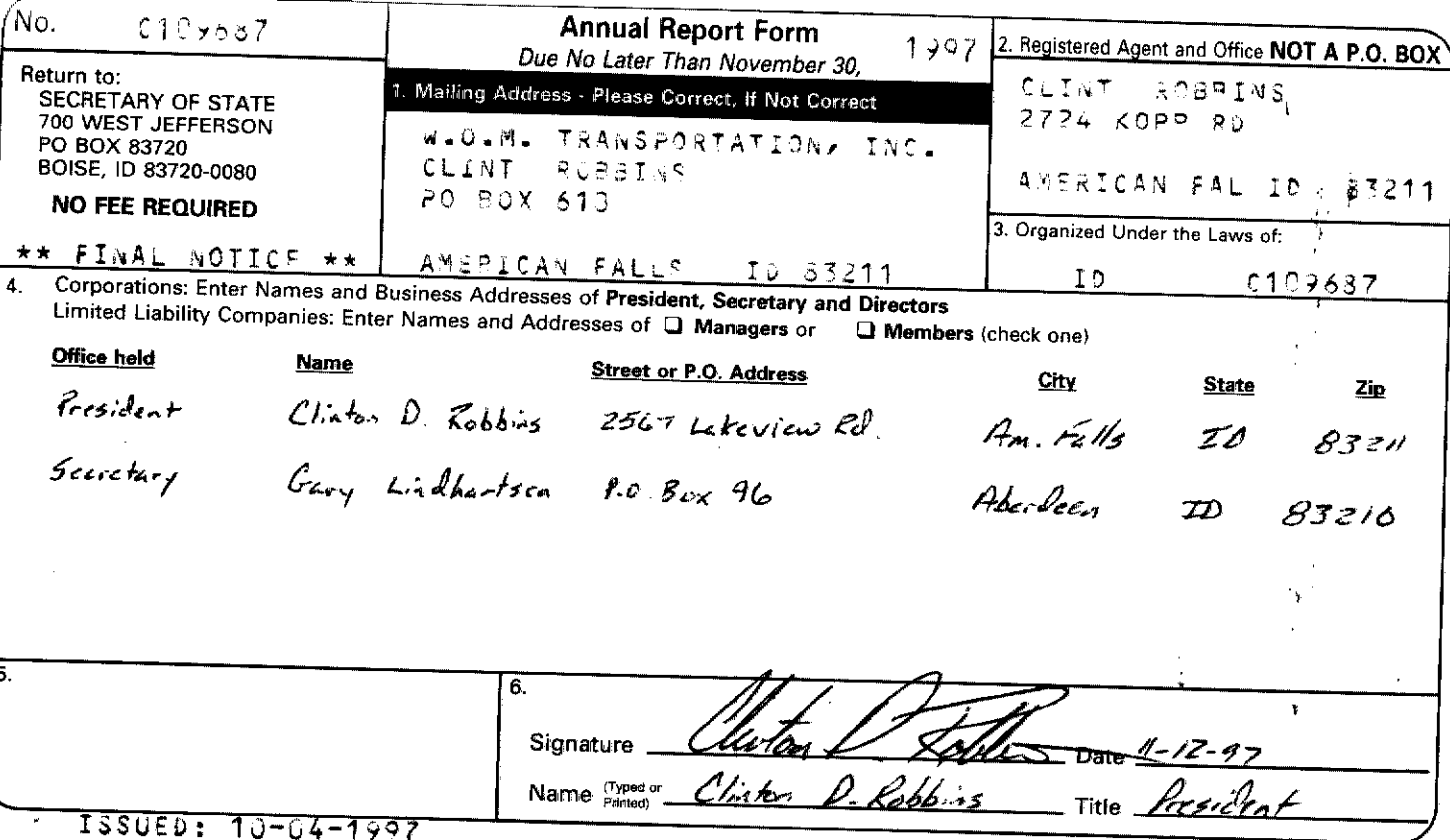 No. C109687
Annual Report Form
Due No Later Than November 30, 1997
Return to:
SECRETARY OF STATE
700 WEST JEFFERSON
PO BOX 83720
BOISE, ID 83720-0080
NO FEE REQUIRED
** FINAL NOTICE **
1. Mailing Address - Please Correct, If Not Correct
W.O.M. TRANSPORTATION, INC.
CLINT ROBBINS
PO BOX 613
AMERICAN FALLS ID 83211
2. Registered Agent and Office NOT A P.O. BOX
CLINT ROBBINS
2724 KOPP RD
AMERICAN FAL ID 83211
3. Organized Under the Laws of:
ID C109687
4. Corporations: Enter Names and Business Addresses of President, Secretary and Directors
Limited Liability Companies: Enter Names and Addresses of ❑ Managers or ❑ Members (check one)
Office held Name Street or P.O. Address City State Zip
President Clinton D. Robbins 2567 Lakeview Rd. Am. Falls ID 83211
Secretary Gary Lindhartsen P.O. Box 96 Aberdeen ID 83210
5.
6.
Signature Clinton D Robbins Date 11-12-97
Name (Typed or Printed) Clinton D. Robbins Title President
ISSUED: 10-04-1997